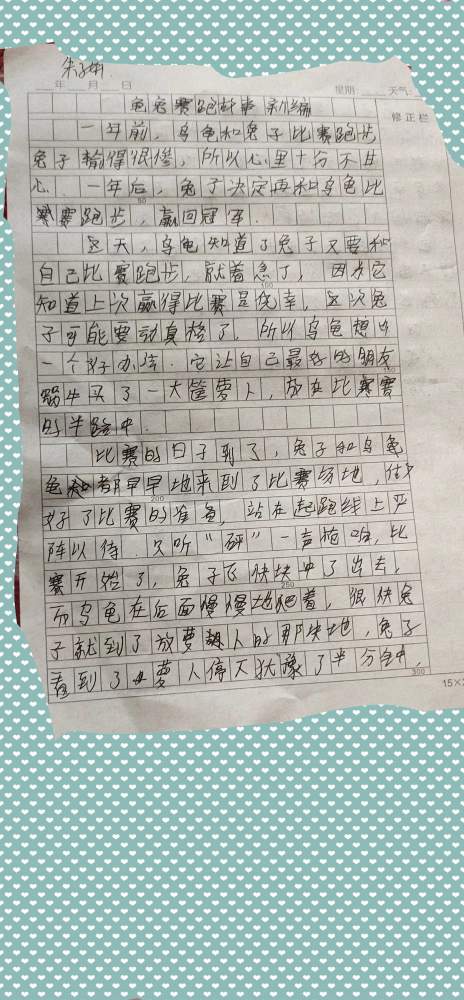 朱子
年 月 日 星期 天气
龟兔赛跑故事新编
修正栏
一年前，乌龟和兔子比赛跑步
兔子输得很惨，所以心里十分不甘
心 一年后，兔子决定再和乌龟比
赛跑步，赢回冠军.
这天，乌龟知道了兔子又要和
自己比赛跑步，就着急了，因为它
100
知道上次赢得比赛是侥幸，这次兔
子可能要动真格了，所以乌龟想出
一个好办法.它让自己最好的朋友
蜗牛买了一大筐萝人，放在比赛
的半路中.
比赛的日子到了，兔子和乌龟
龟都早早地来到了比赛场地，做
200
好了比赛的准备，站在起跑线上严
阵以待.只听“砰”一声枪响，比
赛开始了，兔子飞快块冲了出去，
250
而乌龟在后面慢慢地爬着，很快兔
子就到了放萝人的那块地，兔子
看到了萝人停下犹豫了半分钟，
300